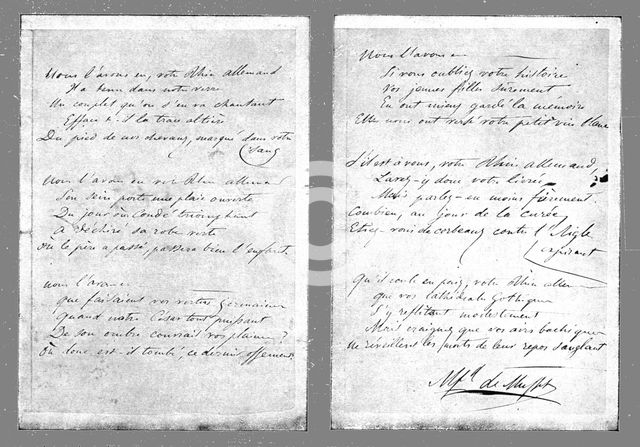 Nous l'avons eu, votre Rhin allemand
Il a tenu dans notre verre
Un couplet qu'on s'en va chantant
Efface-t-il la trace altière
Du pied de nos chevaux, marqué dans votre
sang
Nous l'avons eu votre Rhin allemand
Son sein porte une plaie ouverte
Du jour où Condé triomphant
A déchiré sa robe verte
Où le père a passé, passera bien l'enfant.
Nous l'avons
que faisaient vos vertus germaines
Quand notre César tout puissant
De son ombre couvrait vos plaines?
Où donc est-il tombé, ce dernier ossement
Nous l'avons
Si vous oubliez votre histoire
Vos jeunes filles sûrement
En ont mieux gardé la mémoire
Elles nous ont versé votre petit vin blanc
S'il est à vous, votre Rhin allemand,
Lavez-y donc votre livrée
Mais parlez-en moins fièrement
Combien, au jour de la curée
Etiez-vous de corbeaux contre l'Aigle
expirant
Qu'il coule en paix, votre Rhin allemand
que vos cathédrales gothiques
S'y reflètent modestement
Mais craignez que vos airs bachiques
Ne réveillent les morts de leur repos sanglant
Alfd de Musset